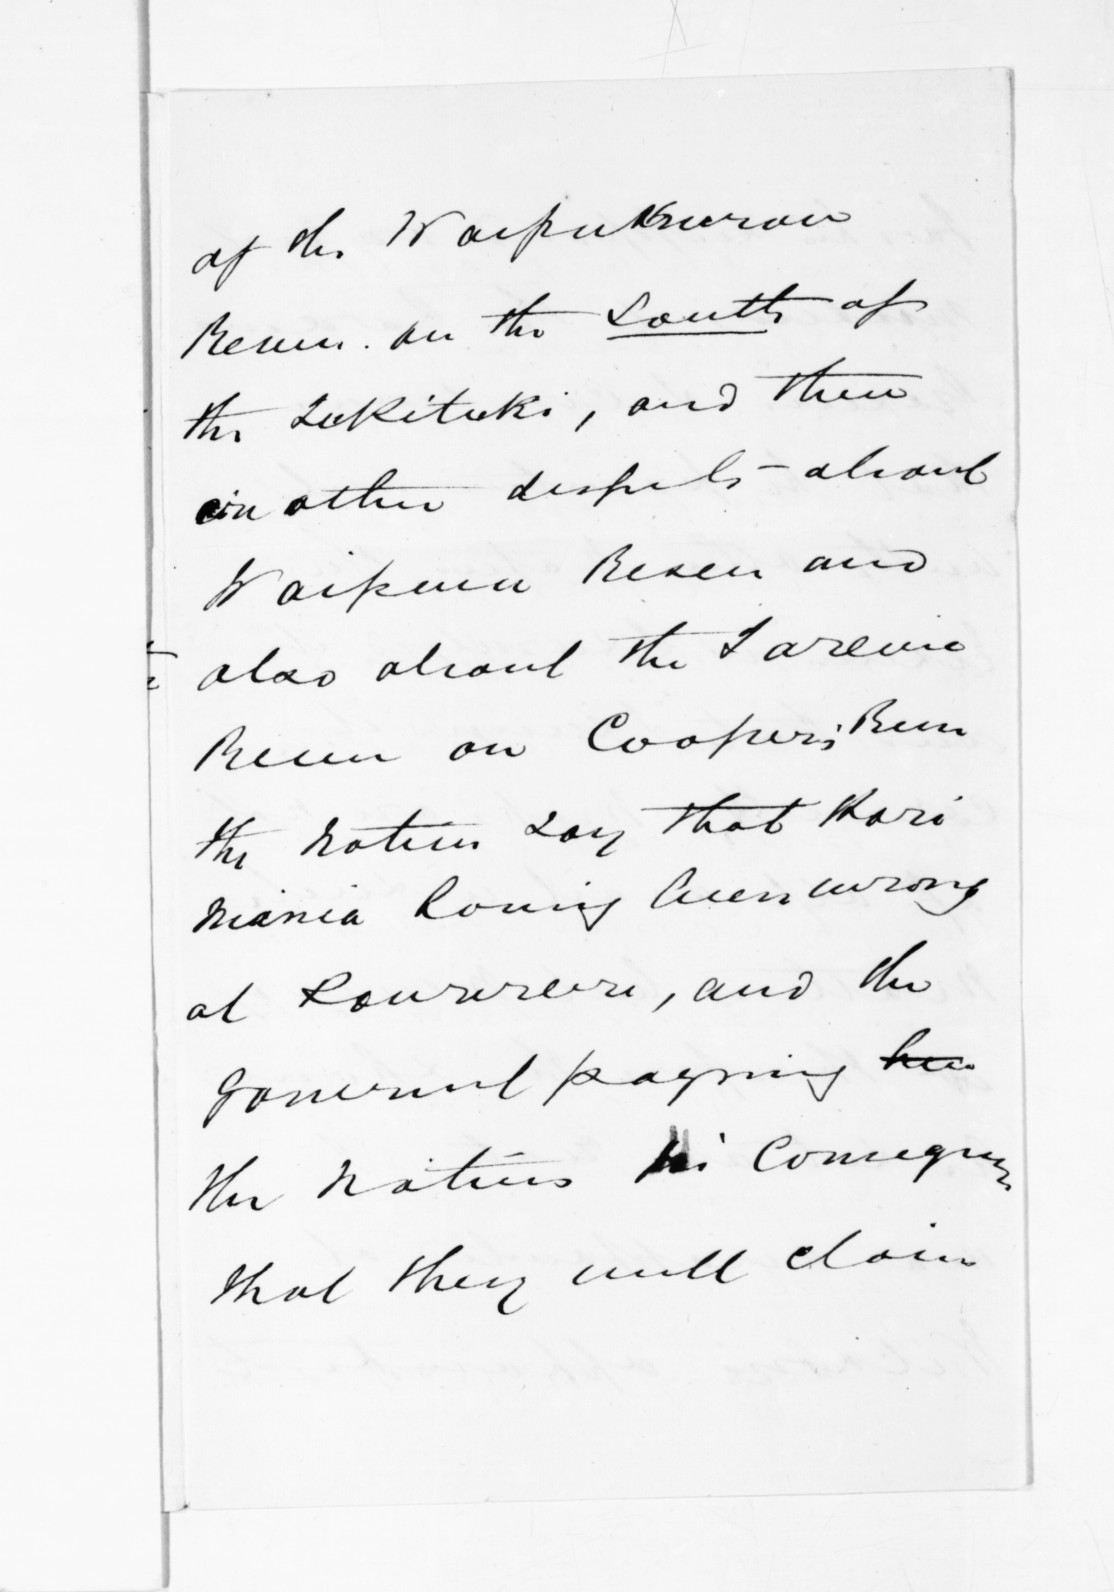 of the Waipukurau
Reserve on the South of
the Tukituki, and there
in other disputes about
Waipawa Reserve and
also about the Tarewa
Reserve on Cooper's Run
the Natives say that
having been wrong
at , and the
Government paying him
the Natives his consequence
that they will claim